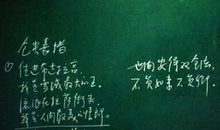 仓央嘉措
住进布达拉宫,
我是雪域最大的王。
流浪在拉萨街头,
我是人间最美的情郎。
世间安得双全法,
不负如来不负卿。